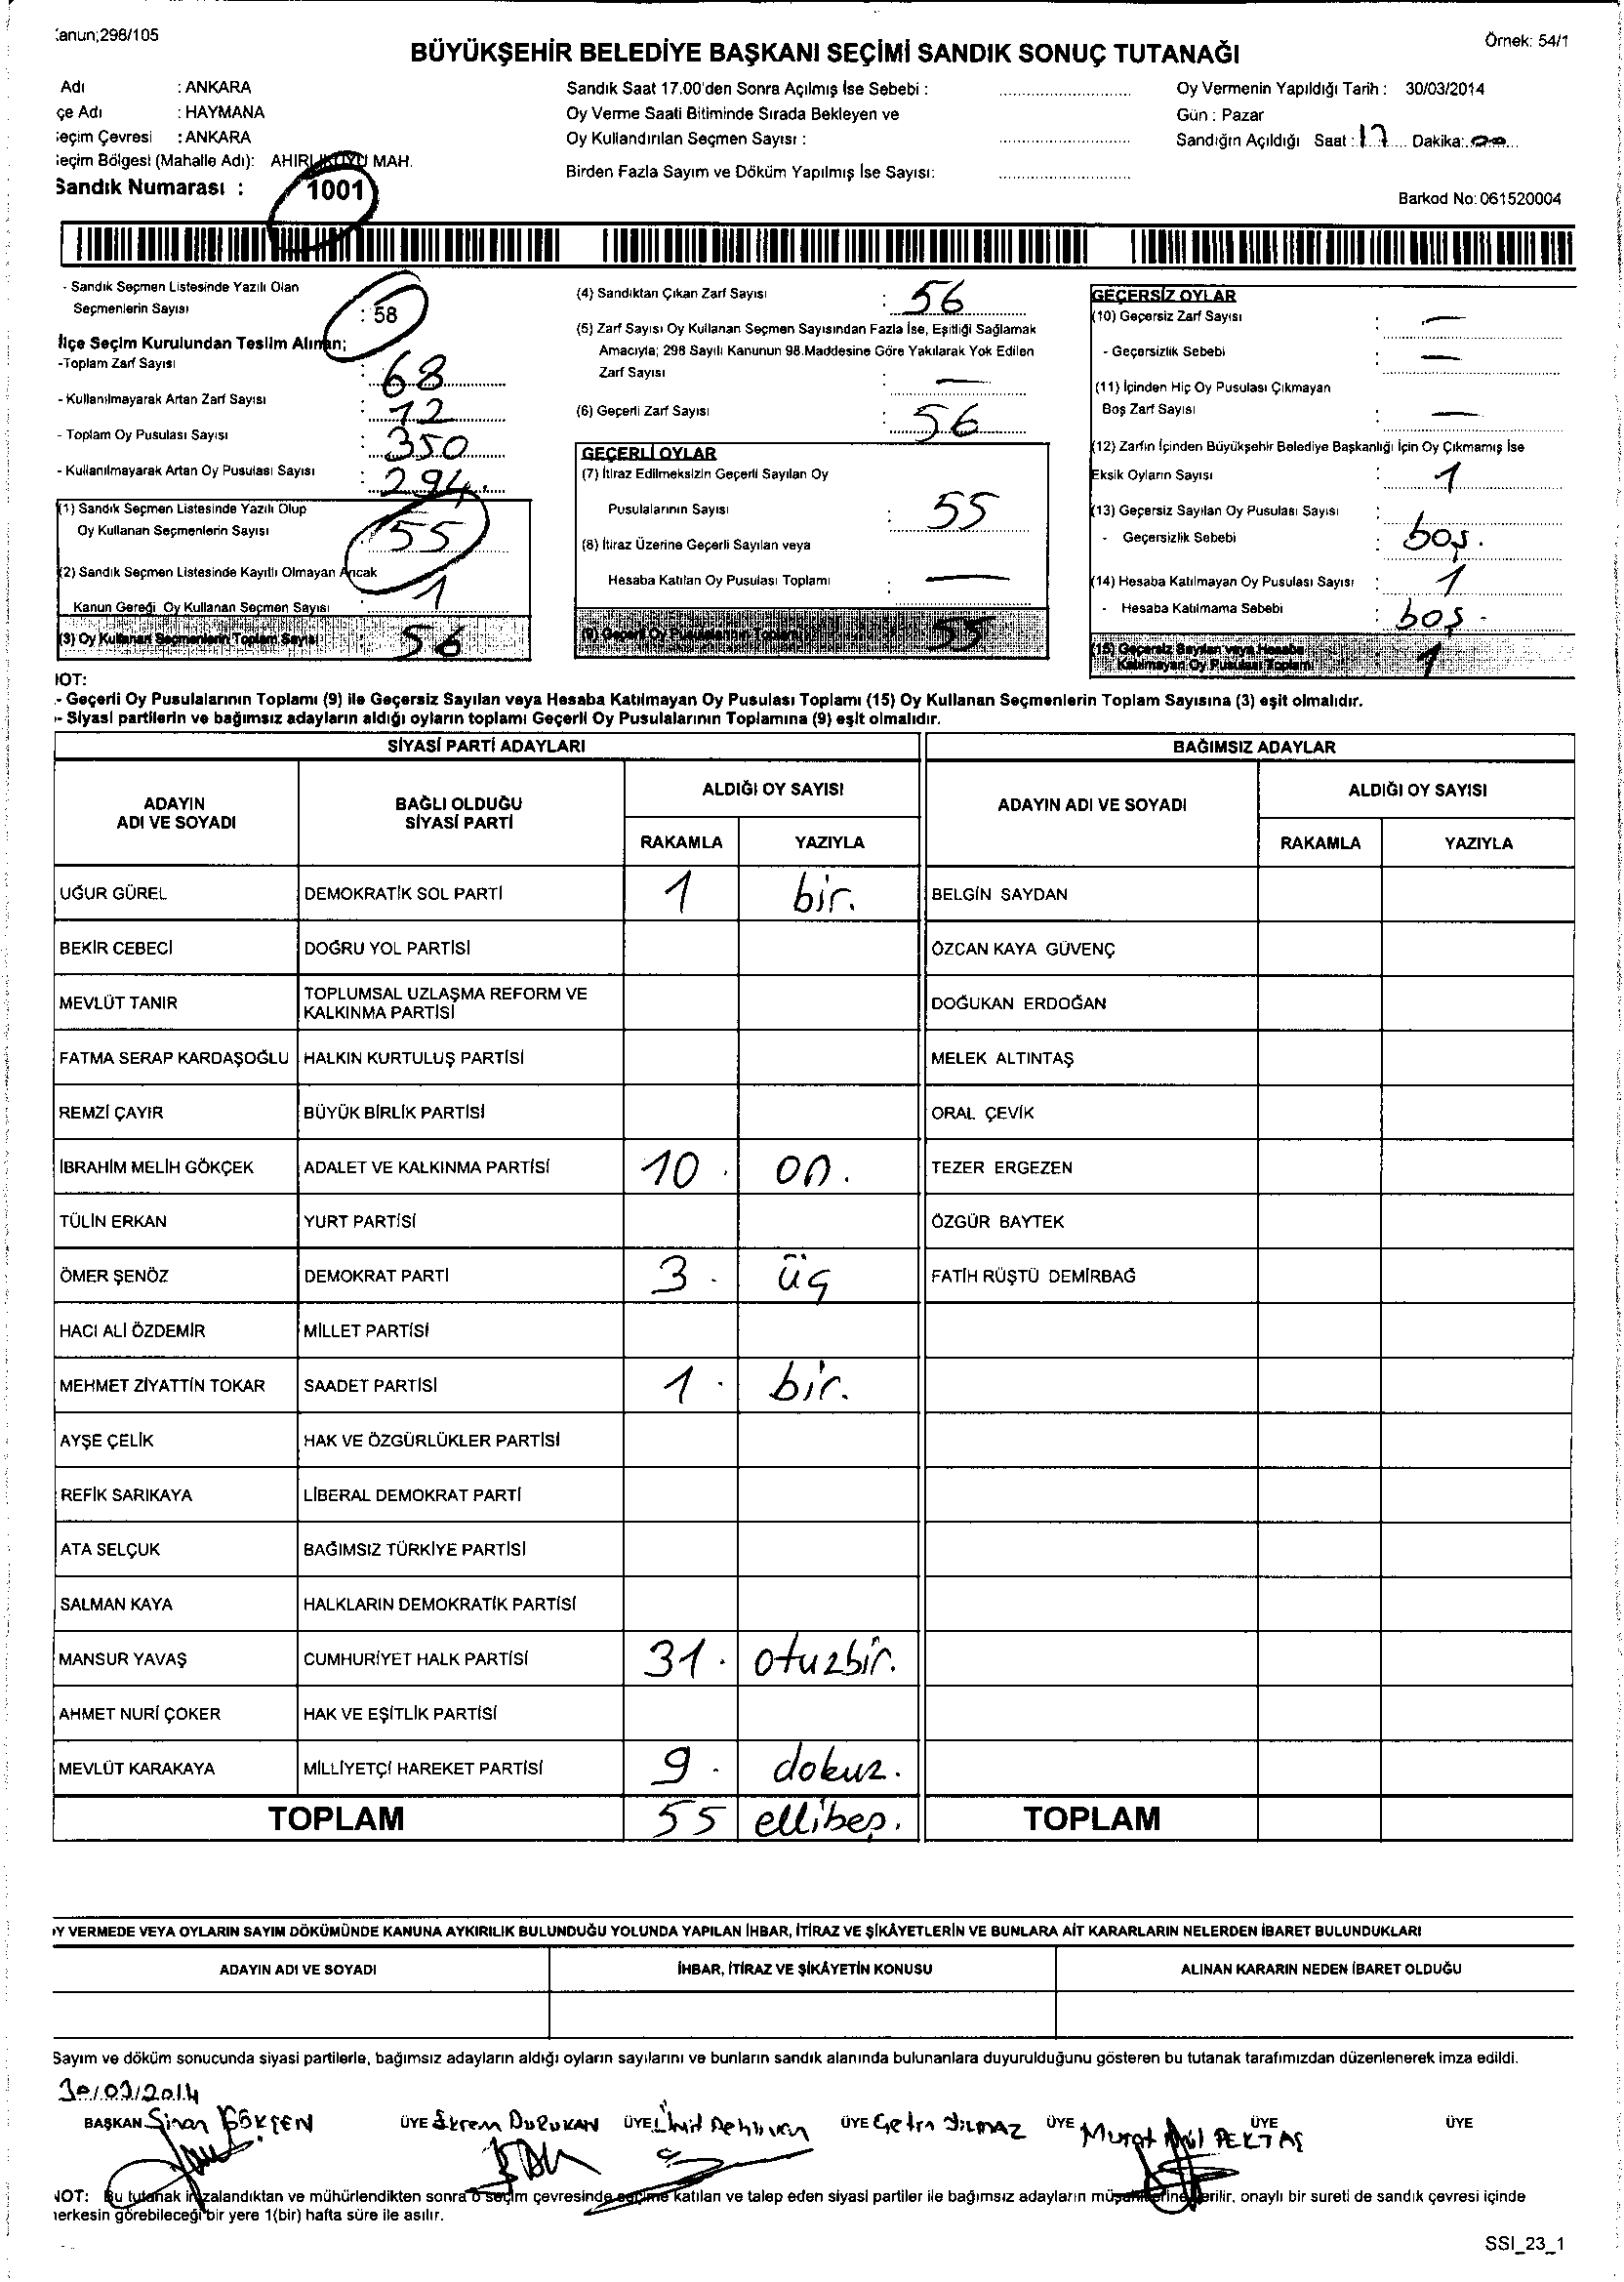 anun;298/105
Örnek: 54/1
BÜYÜKŞEHİR BELEDİYE BAŞKANI SEÇİMİ SANDIK SONUÇ TUTANAĞI
Adı : ANKARA
çe Adı : HAYMANA
eçim Çevresi : ANKARA
eçim Bölgesi (Mahalle Adı): AHIRLIKUYU MAH.
Sandık Numarası : 1001
Sandık Saat 17.00'den Sonra Açılmış İse Sebebi :
Oy Verme Saati Bitiminde Sırada Bekleyen ve
Oy Kullandırılan Seçmen Sayısı :
Birden Fazla Sayım ve Döküm Yapılmış İse Sayısı:
Oy Vermenin Yapıldığı Tarih : 30/03/2014
Gün : Pazar
Sandığın Açıldığı Saat : 17 Dakika: 00
Barkod No: 061520004
- Sandık Seçmen Listesinde Yazılı Olan
Seçmenlerin Sayısı : 58
İlçe Seçim Kurulundan Teslim Alınan;
-Toplam Zarf Sayısı : 68
- Kullanılmayarak Artan Zarf Sayısı : 12
- Toplam Oy Pusulası Sayısı : 350
- Kullanılmayarak Artan Oy Pusulası Sayısı : 294
(1) Sandık Seçmen Listesinde Yazılı Olup
Oy Kullanan Seçmenlerin Sayısı : 55
(2) Sandık Seçmen Listesinde Kayıtlı Olmayan Ancak
Kanun Gereği Oy Kullanan Seçmen Sayısı : 1
(3) Oy Kullanan Seçmenlerin Toplam Sayısı 56
(4) Sandıktan Çıkan Zarf Sayısı : 56
(5) Zarf Sayısı Oy Kullanan Seçmen Sayısından Fazla İse, Eşitliği Sağlamak
Amacıyla; 298 Sayılı Kanunun 98.Maddesine Göre Yakılarak Yok Edilen
Zarf Sayısı : —
(6) Geçerli Zarf Sayısı : 56
GEÇERLİ OYLAR
(7) İtiraz Edilmeksizin Geçerli Sayılan Oy
Pusulalarının Sayısı : 55
(8) İtiraz Üzerine Geçerli Sayılan veya
Hesaba Katılan Oy Pusulası Toplamı : —
(9) Geçerli Oy Pusulalarının Toplamı 55
GEÇERSİZ OYLAR
(10) Geçersiz Zarf Sayısı : —
- Geçersizlik Sebebi : —
(11) İçinden Hiç Oy Pusulası Çıkmayan
Boş Zarf Sayısı : —
(12) Zarfın İçinden Büyükşehir Belediye Başkanlığı İçin Oy Çıkmamış İse
Eksik Oyların Sayısı : 1
(13) Geçersiz Sayılan Oy Pusulası Sayısı :
- Geçersizlik Sebebi : boş.
(14) Hesaba Katılmayan Oy Pusulası Sayısı : 1
- Hesaba Katılmama Sebebi : boş -
(15) Geçersiz Sayılan veya Hesaba
Katılmayan Oy Pusulası Toplamı 1
NOT:
- Geçerli Oy Pusulalarının Toplamı (9) ile Geçersiz Sayılan veya Hesaba Katılmayan Oy Pusulası Toplamı (15) Oy Kullanan Seçmenlerin Toplam Sayısına (3) eşit olmalıdır.
- Siyasi partilerin ve bağımsız adayların aldığı oyların toplamı Geçerli Oy Pusulalarının Toplamına (9) eşit olmalıdır.
SİYASİ PARTİ ADAYLARI BAĞIMSIZ ADAYLAR
ADAYIN ADI VE SOYADI BAĞLI OLDUĞU SİYASİ PARTİ ALDIĞI OY SAYISI ADAYIN ADI VE SOYADI ALDIĞI OY SAYISI
RAKAMLA YAZIYLA RAKAMLA YAZIYLA
UĞUR GÜREL DEMOKRATİK SOL PARTİ 1 bir. BELGİN SAYDAN
BEKİR CEBECİ DOĞRU YOL PARTİSİ ÖZCAN KAYA GÜVENÇ
MEVLÜT TANIR TOPLUMSAL UZLAŞMA REFORM VE KALKINMA PARTİSİ DOĞUKAN ERDOĞAN
FATMA SERAP KARDAŞOĞLU HALKIN KURTULUŞ PARTİSİ MELEK ALTINTAŞ
REMZİ ÇAYIR BÜYÜK BİRLİK PARTİSİ ORAL ÇEVİK
İBRAHİM MELİH GÖKÇEK ADALET VE KALKINMA PARTİSİ 10 . on . TEZER ERGEZEN
TÜLİN ERKAN YURT PARTİSİ ÖZGÜR BAYTEK
ÖMER ŞENÖZ DEMOKRAT PARTİ 3 . üç FATİH RÜŞTÜ DEMİRBAĞ
HACI ALİ ÖZDEMİR MİLLET PARTİSİ
MEHMET ZİYATTİN TOKAR SAADET PARTİSİ 1 . bir.
AYŞE ÇELİK HAK VE ÖZGÜRLÜKLER PARTİSİ
REFİK SARIKAYA LİBERAL DEMOKRAT PARTİ
ATA SELÇUK BAĞIMSIZ TÜRKİYE PARTİSİ
SALMAN KAYA HALKLARIN DEMOKRATİK PARTİSİ
MANSUR YAVAŞ CUMHURİYET HALK PARTİSİ 31 . otuzbir.
AHMET NURİ ÇOKER HAK VE EŞİTLİK PARTİSİ
MEVLÜT KARAKAYA MİLLİYETÇİ HAREKET PARTİSİ 9 . dokuz.
TOPLAM 55 ellibeş. TOPLAM
Y VERMEDE VEYA OYLARIN SAYIM DÖKÜMÜNDE KANUNA AYKIRILIK BULUNDUĞU YOLUNDA YAPILAN İHBAR, İTİRAZ VE ŞİKÂYETLERİN VE BUNLARA AİT KARARLARIN NELERDEN İBARET BULUNDUKLARI
ADAYIN ADI VE SOYADI İHBAR, İTİRAZ VE ŞİKÂYETİN KONUSU ALINAN KARARIN NEDEN İBARET OLDUĞU
Sayım ve döküm sonucunda siyasi partilerle, bağımsız adayların aldığı oyların sayılarını ve bunların sandık alanında bulunanlara duyurulduğunu gösteren bu tutanak tarafımızdan düzenlenerek imza edildi.
30/03/2014
BAŞKAN Sinan GÖKÇEN ÜYE Ekrem DURUKAN ÜYE Ümit ÜYE Çetin YILMAZ ÜYE Murat PEKTAŞ ÜYE ÜYE
NOT: Bu tutanak imzalandıktan ve mühürlendikten sonra o seçim çevresinde seçime katılan ve talep eden siyasi partiler ile bağımsız adayların müşahitlerine verilir, onaylı bir sureti de sandık çevresi içinde
herkesin görebileceği bir yere 1(bir) hafta süre ile asılır.
SSI_23_1